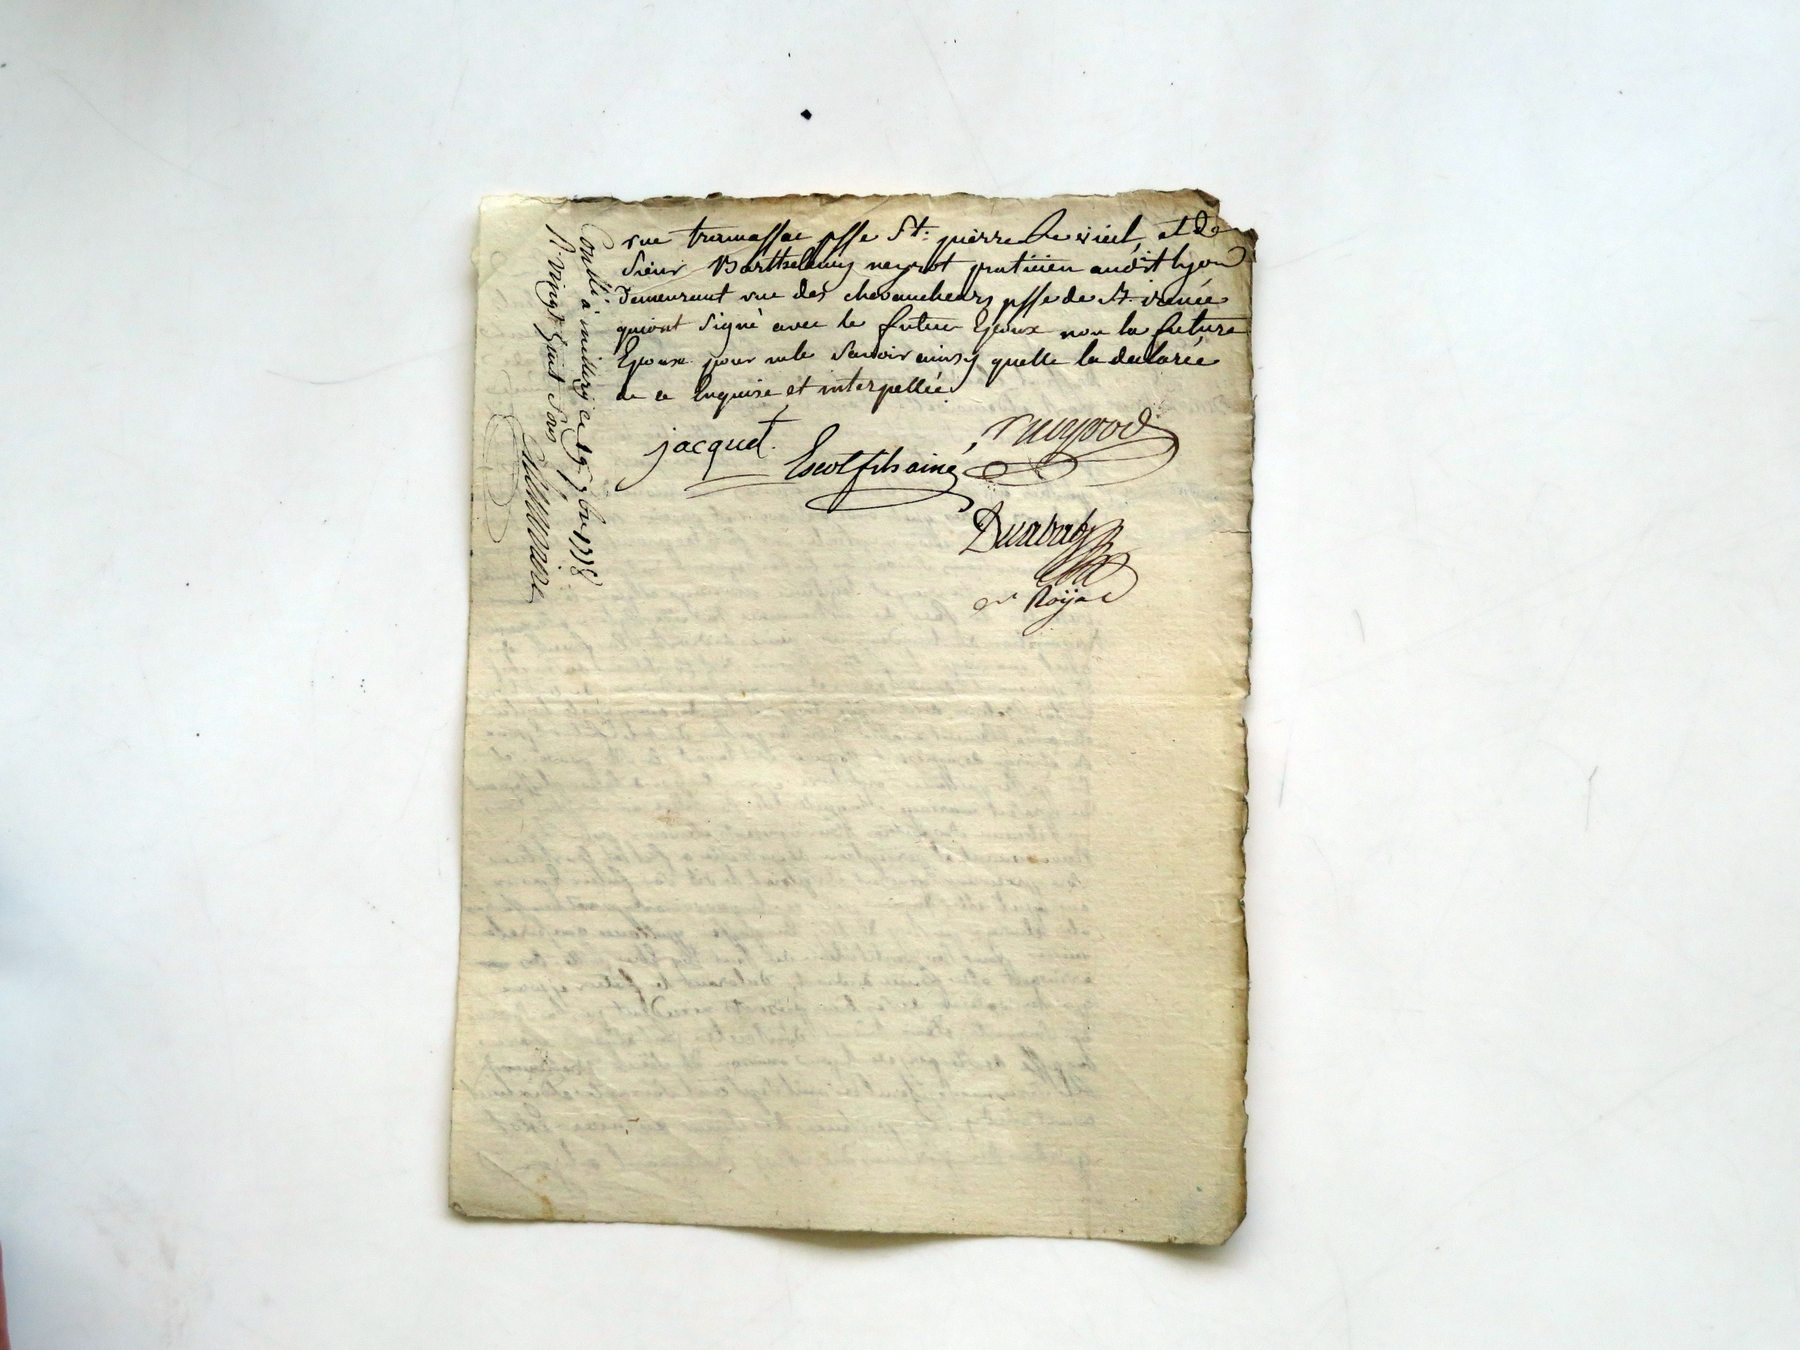 rue tramassac psse St. pierre le vieil, et de
Sieur Barthelemy neyrot praticien audit lyon
demeurant rue des chevaucheurs psse de St. irenée
qui ont signé avec le futur Epoux non la future
Epouse pour ne le savoir ainsy quelle la declarée
de ce Enquise et interpellée
jacquet
Escot fils ainé
Durabat
no. Royal
Conllé à millery ce 19 7bre 1778
R. vingt huit sous